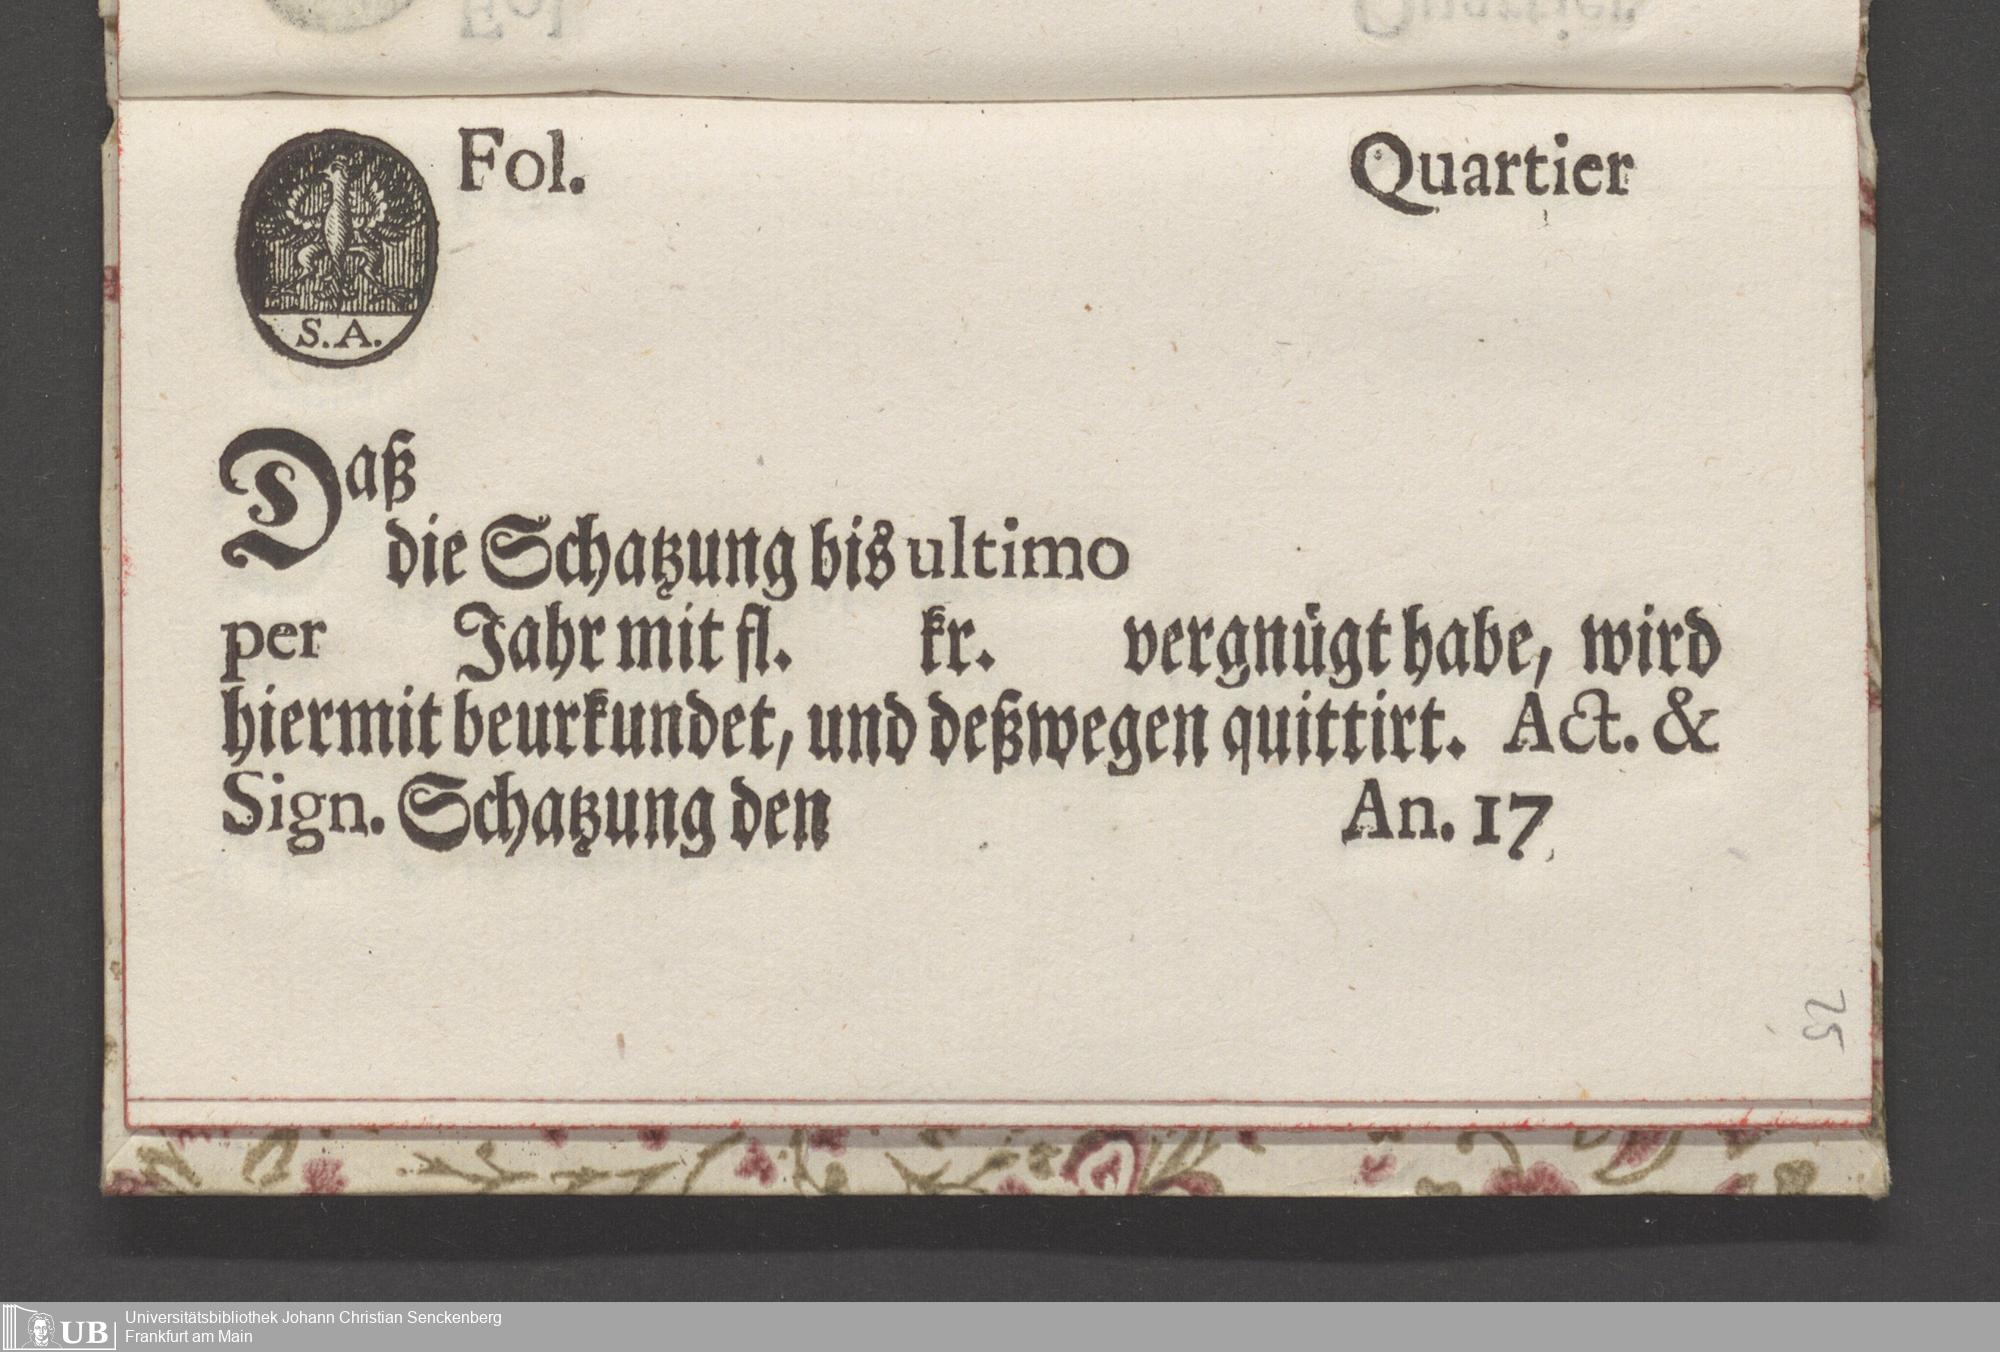 Fol. Quartier
S. A.
Daß
die Schatzung bis ultimo
per Jahr mit fl. kr. vergnügt habe, wird
hiermit beurkundet, und deßwegen quittirt. Act. &
Sign. Schatzung den An. 17
25
UB
Universitätsbibliothek Johann Christian Senckenberg
Frankfurt am Main